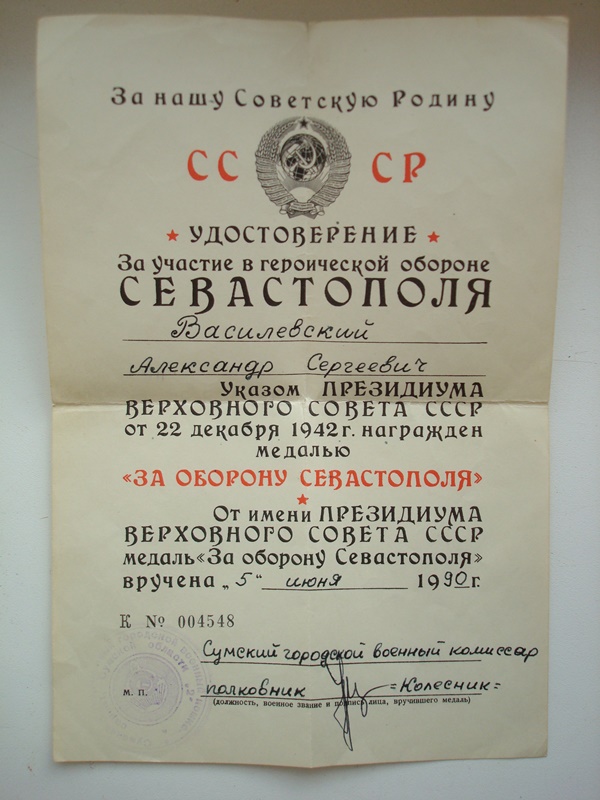 За нашу Советскую Родину
СССР
УДОСТОВЕРЕНИЕ
За участие в героической обороне
СЕВАСТОПОЛЯ
Василевский
Александр Сергеевич
Указом ПРЕЗИДИУМА
ВЕРХОВНОГО СОВЕТА СССР
от 22 декабря 1942 г. награжден
медалью
«ЗА ОБОРОНУ СЕВАСТОПОЛЯ»
От имени ПРЕЗИДИУМА
ВЕРХОВНОГО СОВЕТА СССР
медаль «За оборону Севастополя»
вручена „5“ июня 1990 г.
К № 004548
Сумский городской военный комиссар
м. п. полковник =Колесник=
(должность, военное звание и подпись лица, вручившего медаль)